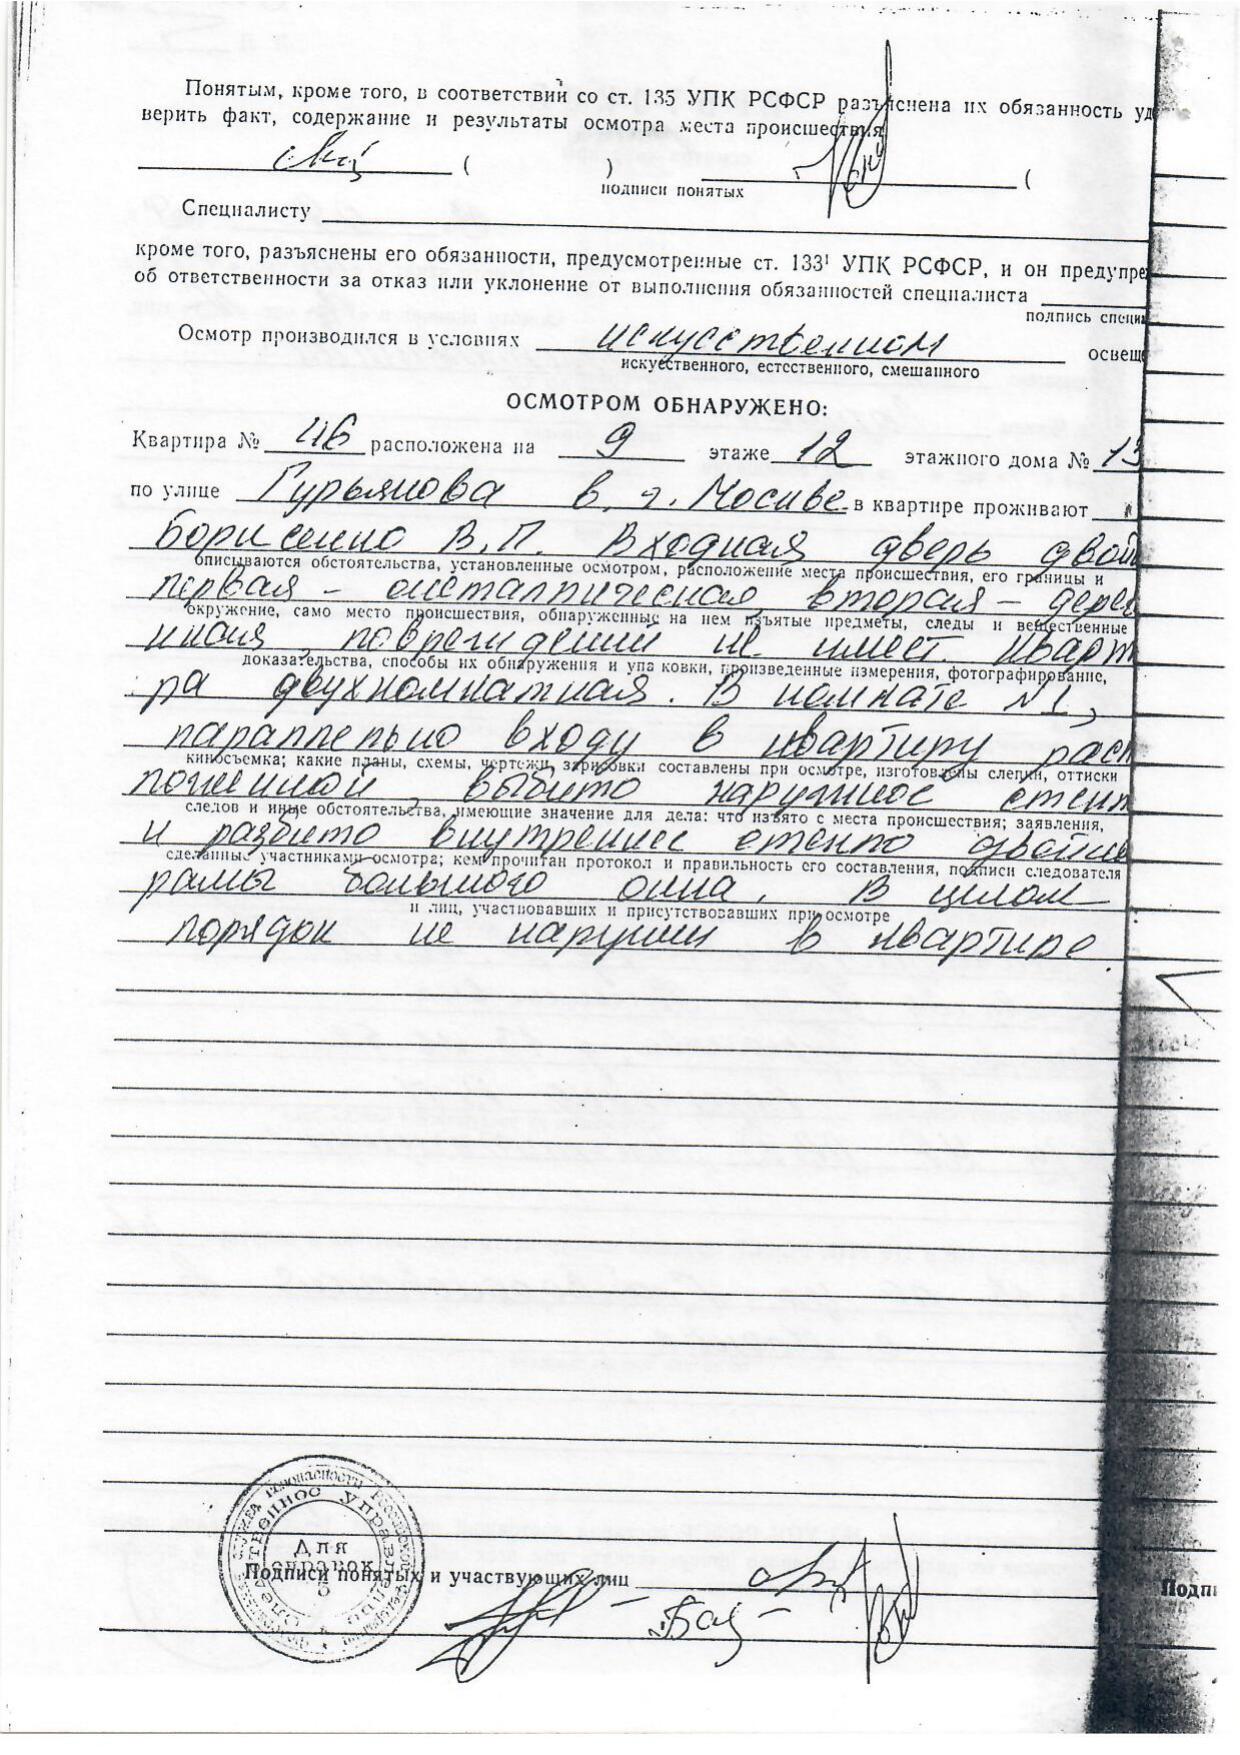 Понятым, кроме того, в соответствии со ст. 135 УПК РСФСР разъяснена их обязанность уд
верить факт, содержание и результаты осмотра места происшествия
( ) (
подписи понятых
Специалисту
кроме того, разъяснены его обязанности, предусмотренные ст. 133¹ УПК РСФСР, и он предупре
об ответственности за отказ или уклонение от выполнения обязанностей специалиста
подпись специ
Осмотр производился в условиях искусственном освещ
искуественного, естественного, смешанного
ОСМОТРОМ ОБНАРУЖЕНО:
Квартира № 46 расположена на 9 этаже 12 этажного дома № 13
по улице Гурьянова в г. Москве в квартире проживают
Борисенко В.П. Входная дверь двой
описываются обстоятельства, установленные осмотром, расположение места происшествия, его границы и
первая - металлическая вторая - дерев
окружение, само место происшествия, обнаруженные на нем изъятые предметы, следы и вещественные
иная, повреждений не имеет. Кварт
доказательства, способы их обнаружения и упа ковки, произведенные измерения, фотографирование,
ра двухкомнатная. В комнате №1,
параллельно входу в квартиру расп
киносъемка; какие планы, схемы, чертежи, зарисовки составлены при осмотре, изготовлены слепки, оттиски
ложенной, выбито наружное стекл
следов и иные обстоятельства, имеющие значение для дела: что изъято с места происшествия; заявления,
и разбито внутреннее стекло двойн
сделанные участниками осмотра; кем прочитан протокол и правильность его составления, подписи следователя
рамы большого окна. В целом
и лиц, участвовавших и присутствовавших при осмотре
порядок не нарушен в квартире.
Для
справок
5
Следственное управление
Подписи понятых и участвующих лиц
Подпи